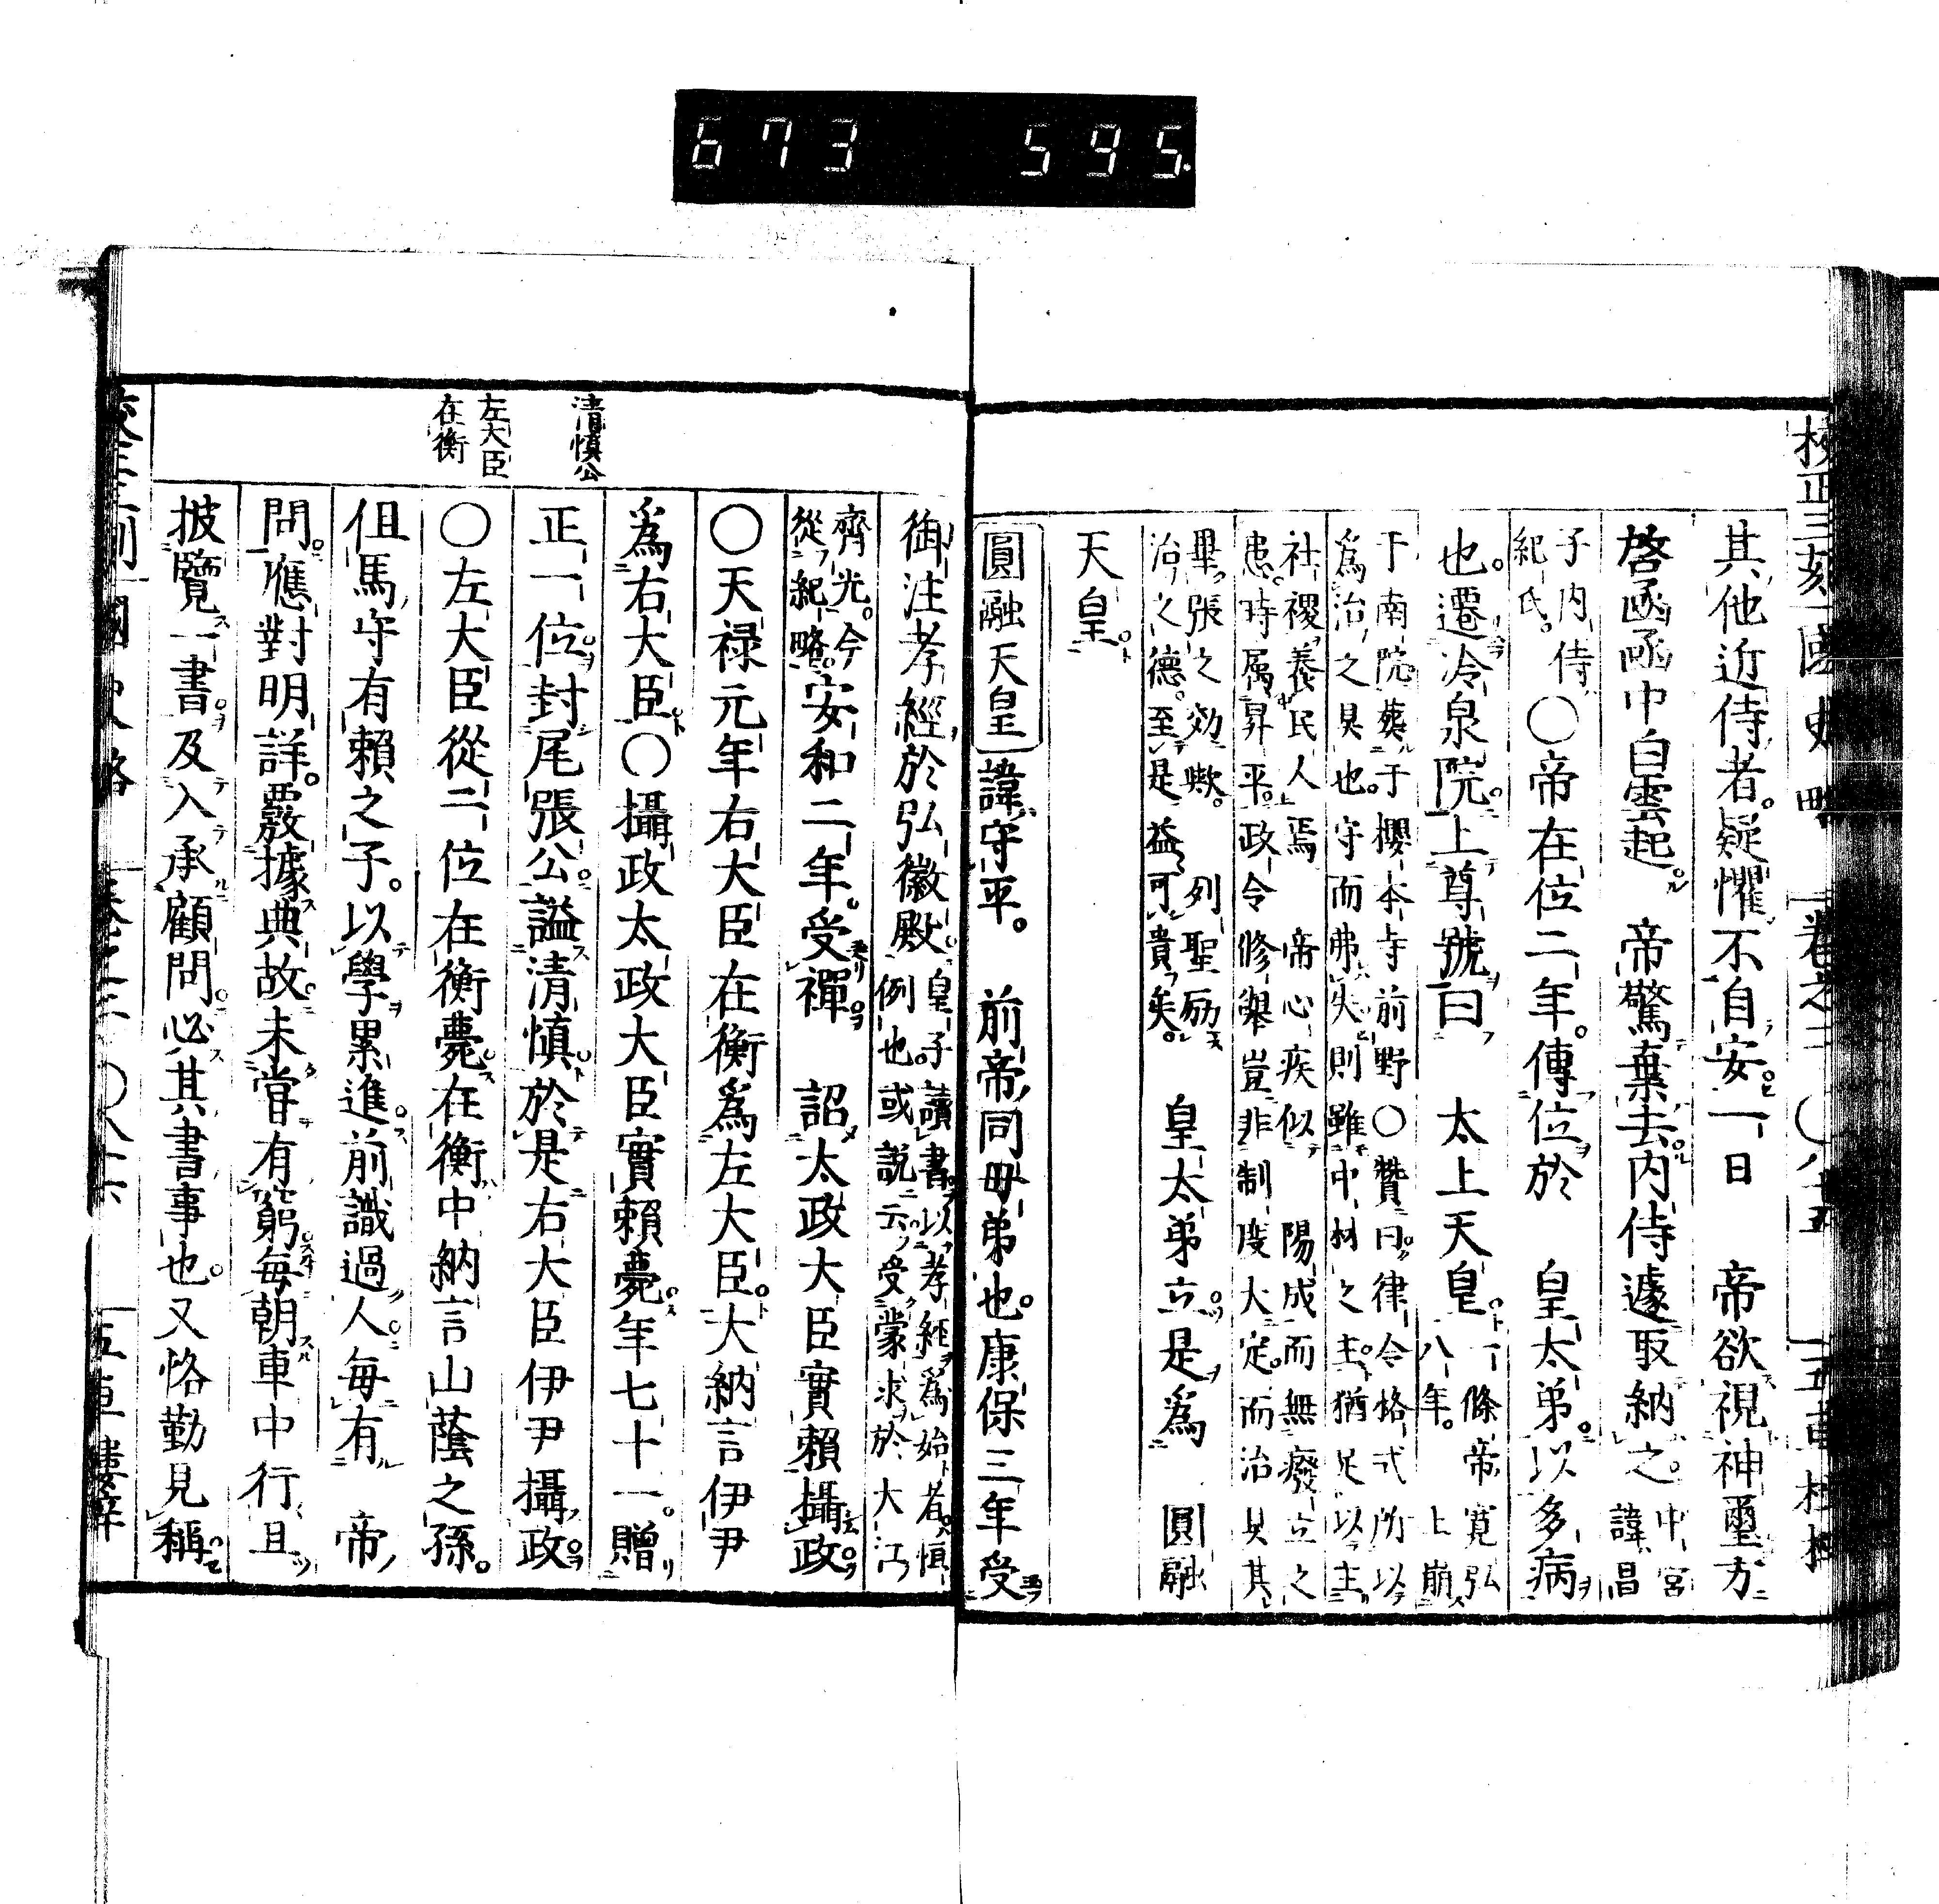 673 595
校正三刻國史略 卷之二 〇八十五 五車樓梓
其他近侍者疑懼不自安一日 帝欲視神璽方
啓函函中白雲起 帝驚棄去内侍遽取納之 中宮諱昌
子内侍紀氏 〇帝在位二年傳位於 皇太弟以多病
也遷冷泉院上尊號曰 太上天皇 一條帝寛弘八年 上崩
于南院葬于櫻本寺前野〇贊曰律令格式所以
爲治之具也守而弗失則雖中材之主猶足以主
社稷養民人焉 帝心疾似 陽成而無廢立之
患時属昇平政令修舉豈非制度大定而治具其
畢張之効歟 列聖励
治之德至是益可貴矣 皇太弟立是爲 圓融
天皇
圓融天皇 諱守平 前帝同母弟也康保三年受
御注孝經於弘徽殿 皇子讀書以孝經爲始者恒
例也或説云受蒙求於大江
齊光今從紀略 安和二年受禪 詔太政大臣實賴攝政
〇天禄元年右大臣在衡爲左大臣大納言伊尹
爲右大臣〇攝政太政大臣實賴薨年七十一贈
正一位封尾張公謚清慎於是右大臣伊尹攝政
〇左大臣從二位在衡薨在衡中納言山蔭之孫
但馬守有賴之子以學累進前識過人每有 帝
問應對明詳覈據典故未嘗有窮每朝車中行且
披覽一書及入承顧問必其書事也又恪勤見稱
清慎公
左大臣
在衡